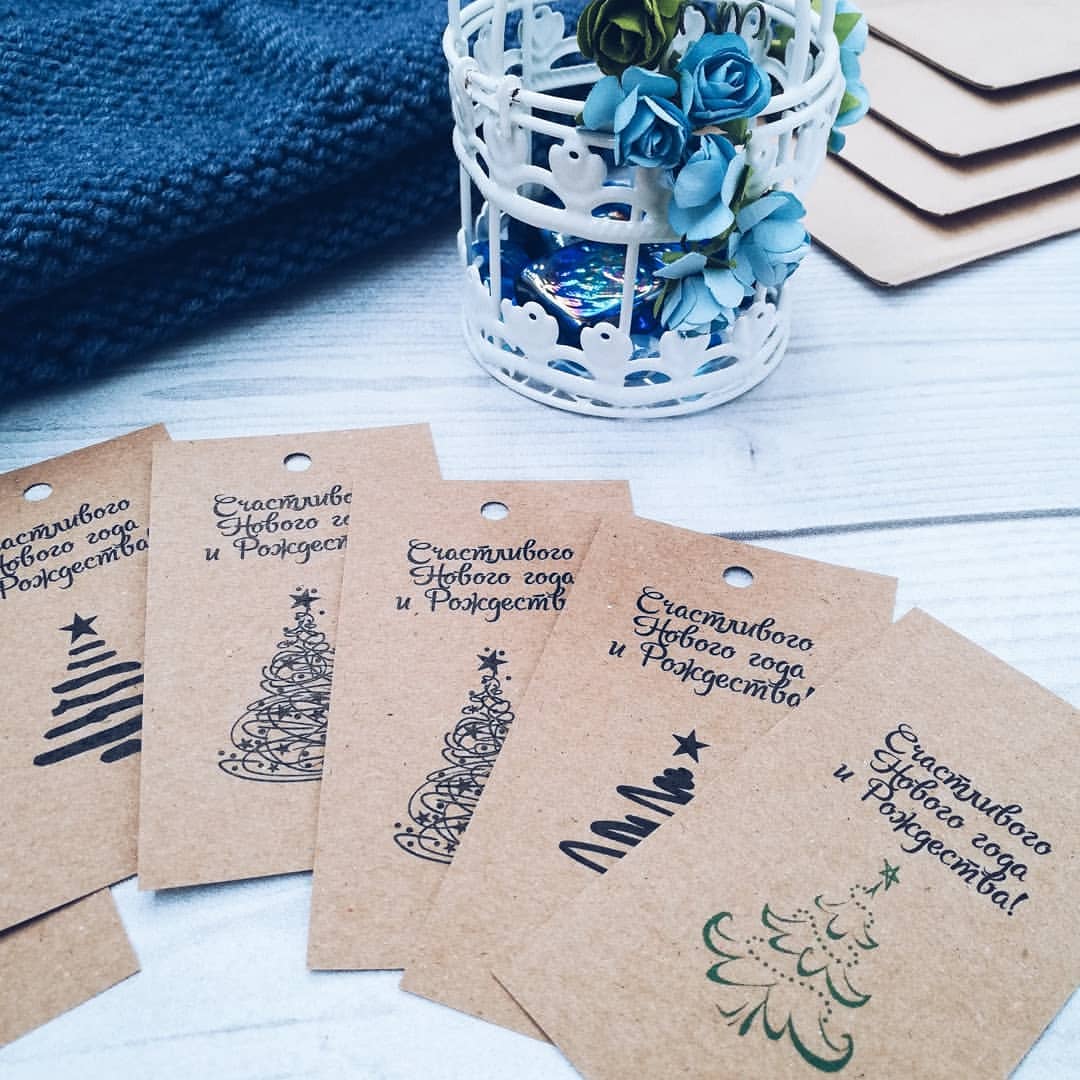 астливого
Нового года
Рождества!
Счастливо
Нового г
и Рождест
Счастливого
Нового года
и Рождеств
Счастливого
Нового года
и Рождества!
Счастливого
Нового года
и Рождества!